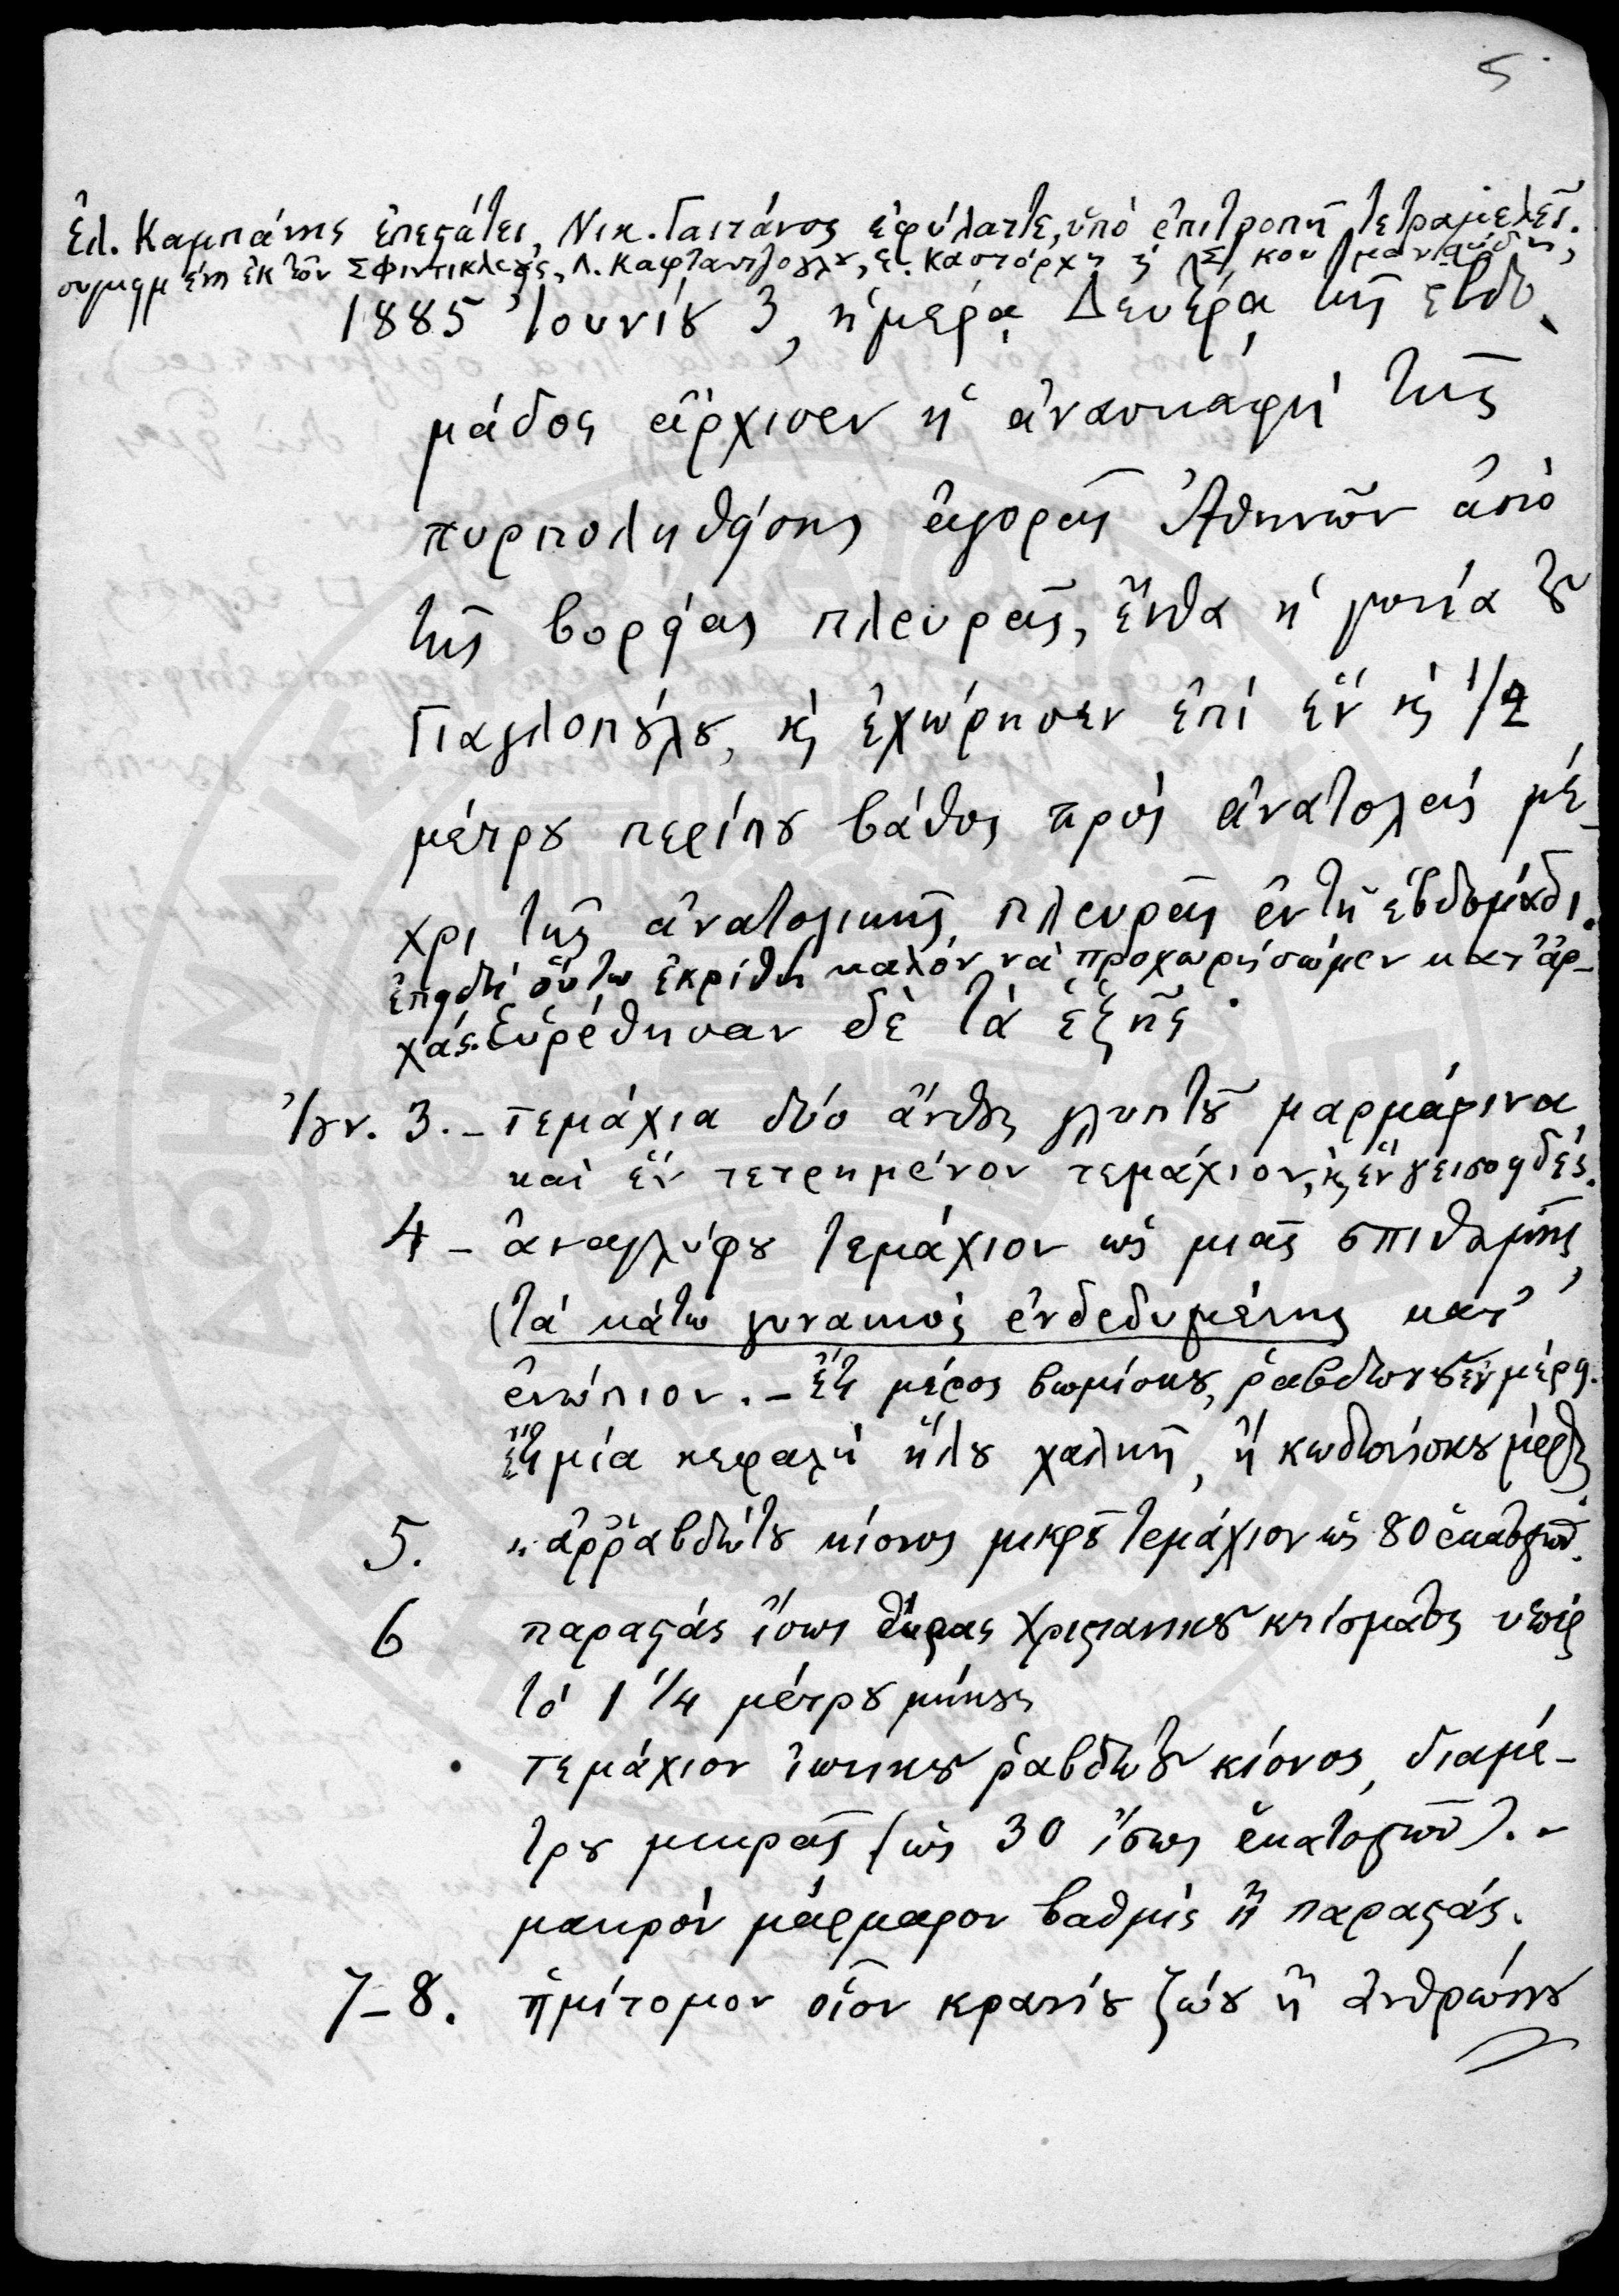 5
Ἐλ. Καμπάνης ἐπεστάτει, Νικ. Γαϊτάνος ἐφύλαττε, ὑπὸ ἐπιτροπῇ τετραμελεῖ.
συγκειμένῃ ἐκ τῶν Σ Φιντικλέους, Λ. Καφταντζόγλου, Ε. Καστόρχη κ Σ. Κουμανούδη,
1885 Ἰουνίου 3, ἡμέρᾳ Δευτέρᾳ τῆς ἑβδο
μάδος ἄρχισεν ἡ ἀνασκαφὴ τῆς
πυρποληθείσης ἀγορᾶς Ἀθηνῶν ἀπὸ
τῆς βορείας πλευρᾶς, ἔνθα ἡ γωνία τοῦ
Γιαγλοπούλου, κ ἐχώρησεν ἐπὶ ἓν κ 1/2
μέτρου περίπου βάθος πρὸς ἀνατολὰς μέ-
χρι τῆς ἀνατολικῆς πλευρᾶς ἐν τῇ ἑβδομάδι.
ἐπειδὴ οὕτω ἐκρίθη καλὸν νὰ προχωρήσωμεν κατ' ἀρ-
χάς. Εὑρέθησαν δὲ τὰ ἑξῆς·
Ἰουν. 3. - τεμάχια δύο ἄνθους γλυπτοῦ μαρμάρινα
καὶ ἓν τετρημένον τεμάχιον, κ ἓν γεισοειδές.
4 - ἀναγλύφου τεμάχιον ὡς μιᾶς σπιθαμῆς,
(τὰ κάτω γυναικὸς ἐνδεδυμένης κατ'
ἐνώπιον. - Ἔτι μέρος βωμίσκου, ῥαβδωτοῦ ἐν μέρει.
Ἔτι μία κεφαλὴ ἥλου χαλκῆ, ἢ κωδωνίσκου μέρος
5. ἀρραβδώτου κίονος μικροῦ τεμάχιον ὡς 80 ἑκατοστῶν.
6 παραστὰς ἴσως θύρας χριστιανικοῦ κτίσματος ὑπὲρ
τὸ 1 1/4 μέτρου μήκους
τεμάχιον ἰωνικοῦ ῥαβδωτοῦ κίονος, διαμέ-
τρου μικρᾶς (ὡς 30 ἴσως ἑκατοστῶν). -
μακρὸν μάρμαρον βαθμὶς ἢ παραστάς.
7-8. ἡμίτομον οἷον κρανίου ζώου ἢ ἀνθρώπου